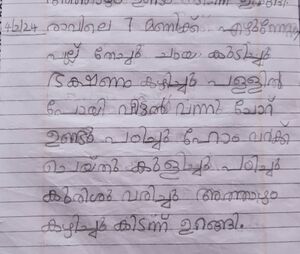 4/2/24 രാവിലെ 7 മണിക്ക് എഴുന്നേറ്റു
പല്ല് തേച്ചു ചായ കുടിച്ചു
ഭക്ഷണം കഴിച്ചു പള്ളിൽ
പോയി വീട്ടൽ വന്നു ചോറ്
ഉണ്ടു പഠിച്ചു ഹോം വർക്ക്
ചെയ്തു കുളിച്ചു പഠിച്ചു
കുരിശു വരിച്ചു അത്താഴം
കഴിച്ചു കിടന്ന് ഉറങ്ങി.